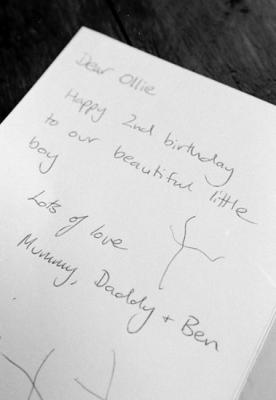 Dear Ollie
Happy 2nd birthday
to our beautiful little
boy
Lots of love
Mummy, Daddy + Ben